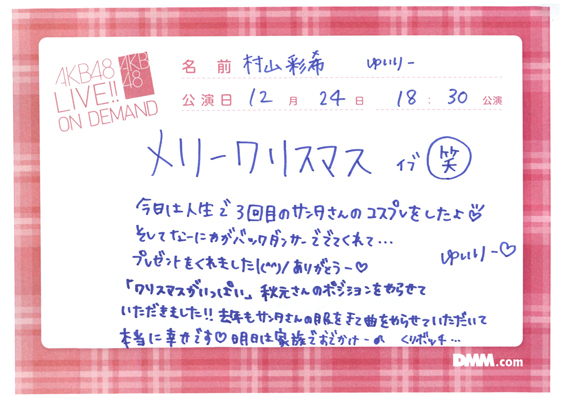 AKB48
LIVE!!
ON DEMAND
AKB
48
名前 村山彩希 ゆいりー
公演日 12月 24日 18:30 公演
メリークリスマス イブ 笑
今日は人生で3回目のサンタさんのコスプレをしたよ♡
そしてなーにかがバックダンサーででてくれて…
プレゼントをくれました!(^^)/ ありがとうー♡
ゆいりー♡
「クリスマスがいっぱい」秋元さんのポジションをやらせて
いただきました!! 去年もサンタさんの服をきて曲をやらせていただいて
本当に幸せです♡ 明日は家族でおでかけーの くりぼっち…
DMM.com